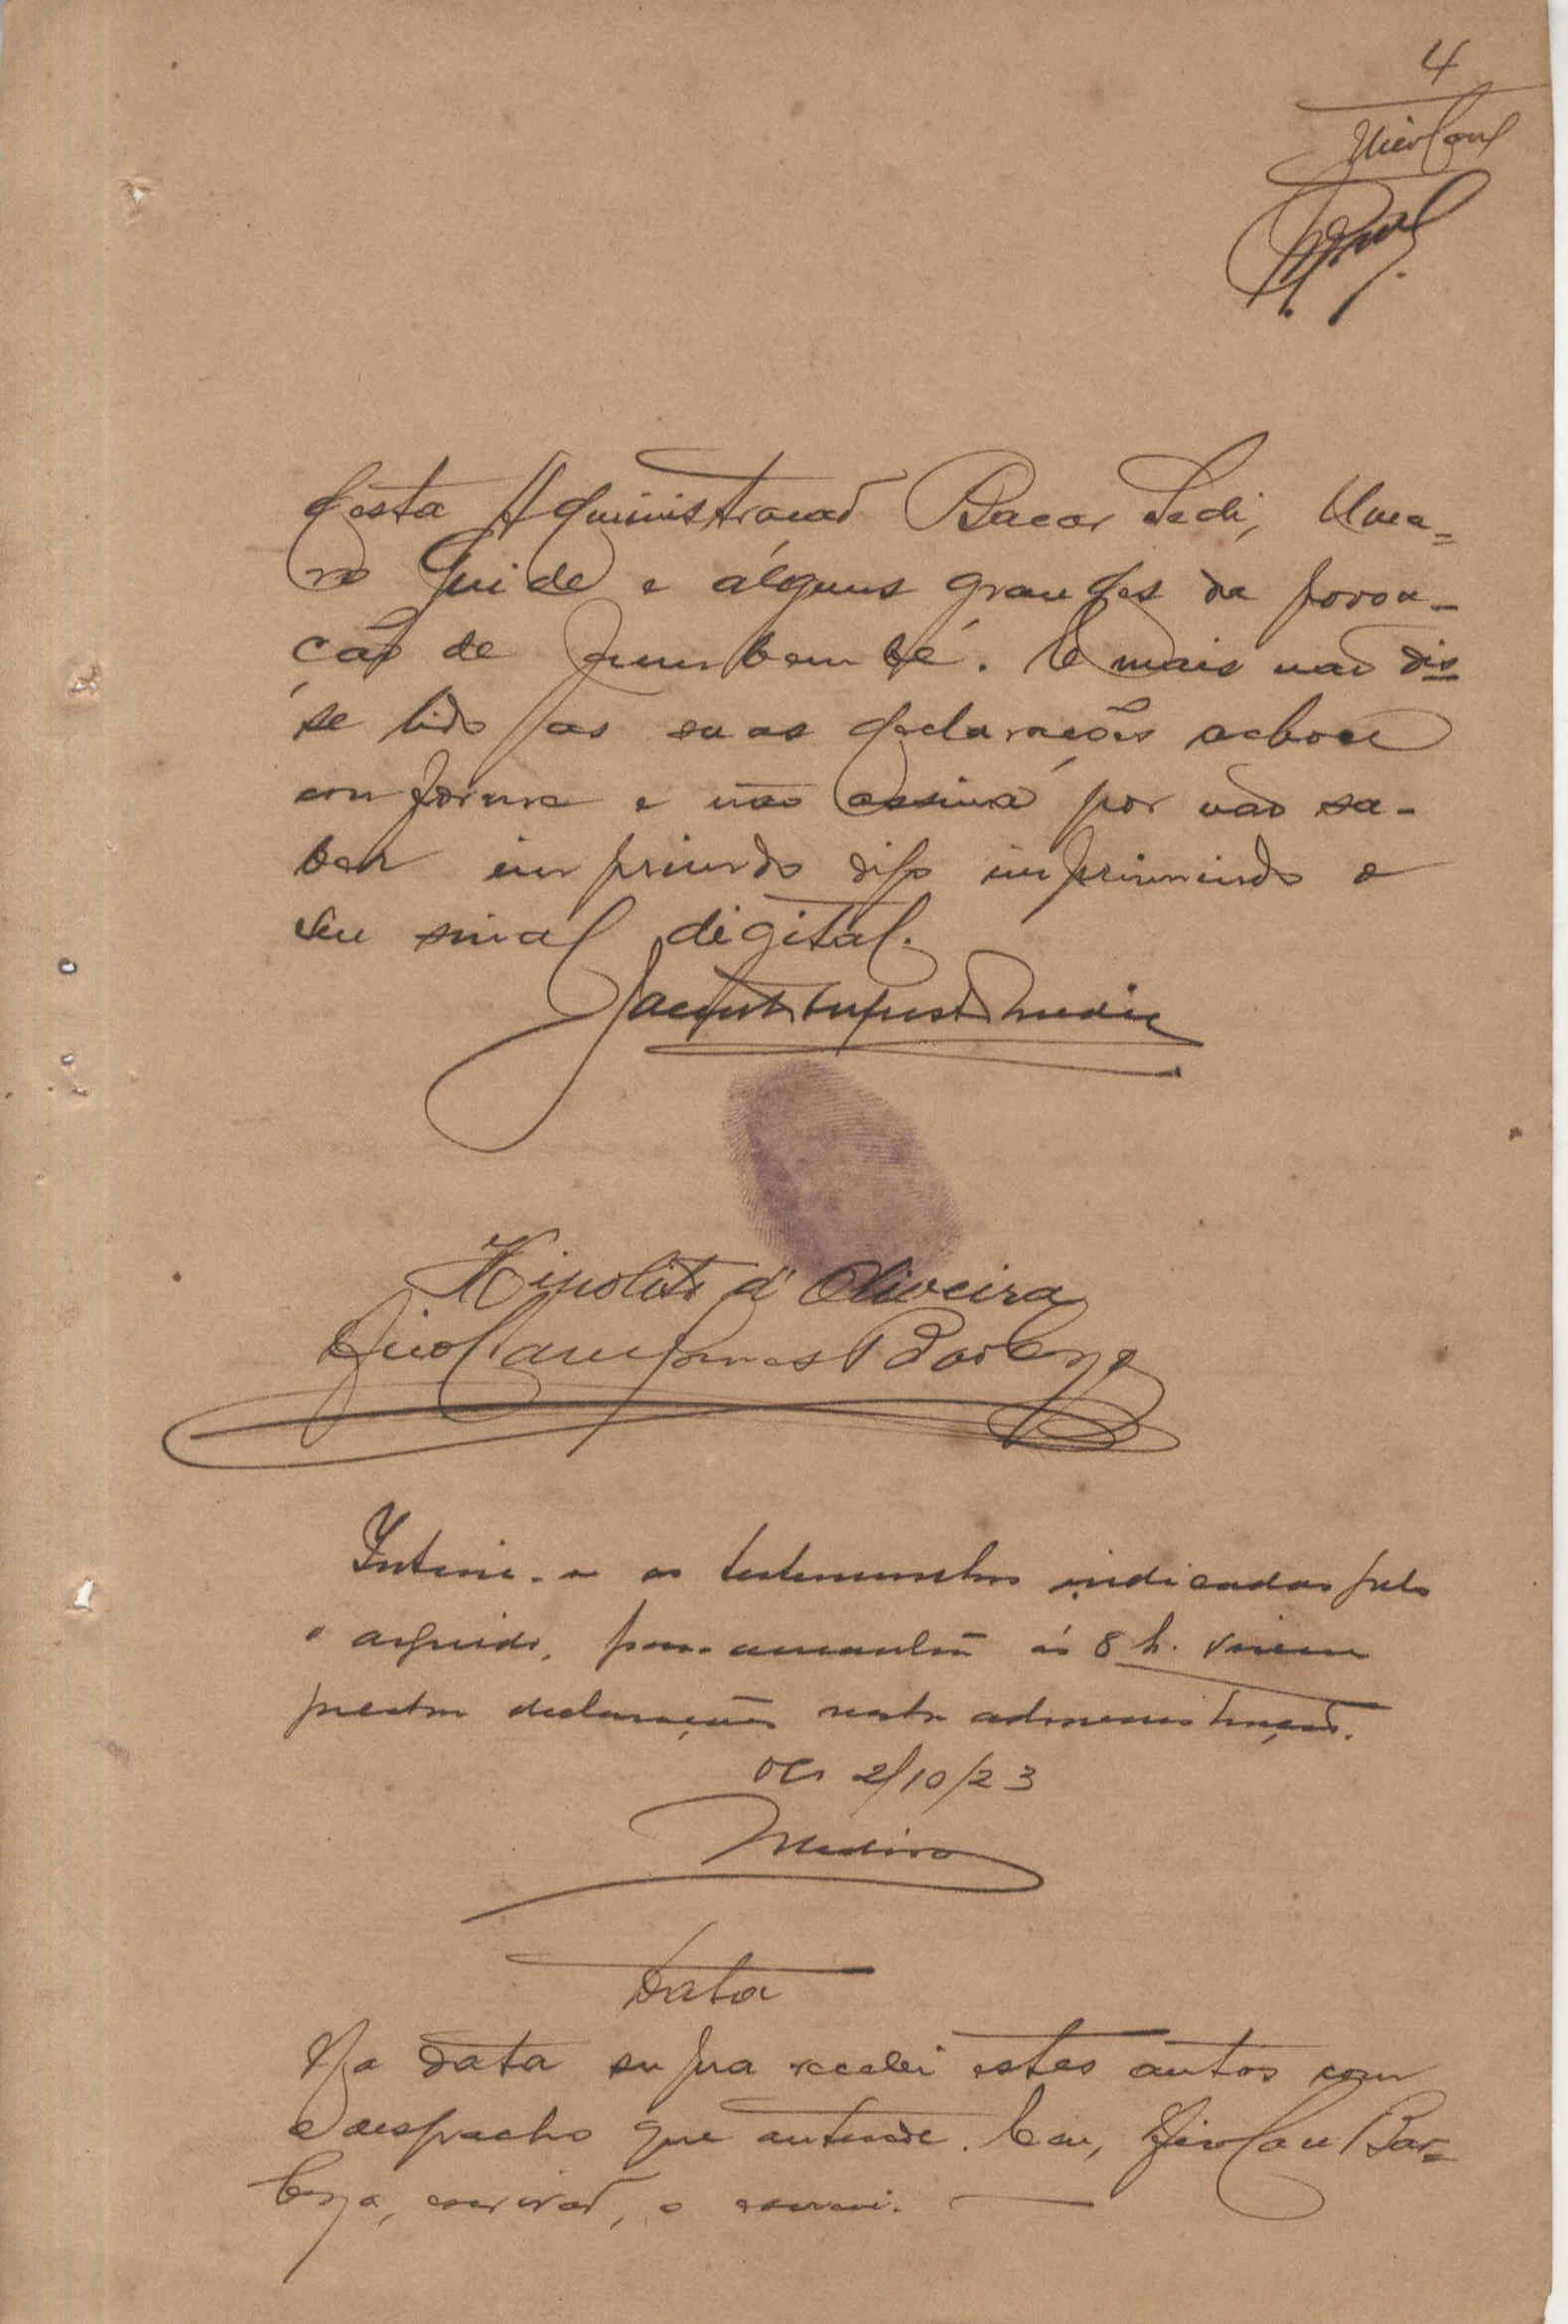 4
desta Administracaõ Bacar Sedi, Uma=
ro Guide e alguns grandes da povoa-
ção de Jumbembé. E mais não dis
se lido as suas declarações achou
conforme e não assina por não sa-
ber imprimindo o
seu sinal digital.
Hipolito d'Oliveira
Barboza
Intime-se as testemunhas indicadas pelo
o arguido, para amanhã ás 8 h. virem
prestar declarações nesta administração.
2/10/23
Medina
Data
Na data supra recebi estes autos com
o despacho que antecede. Eu, Bar=
boza, escrivaõ, o escrevi.